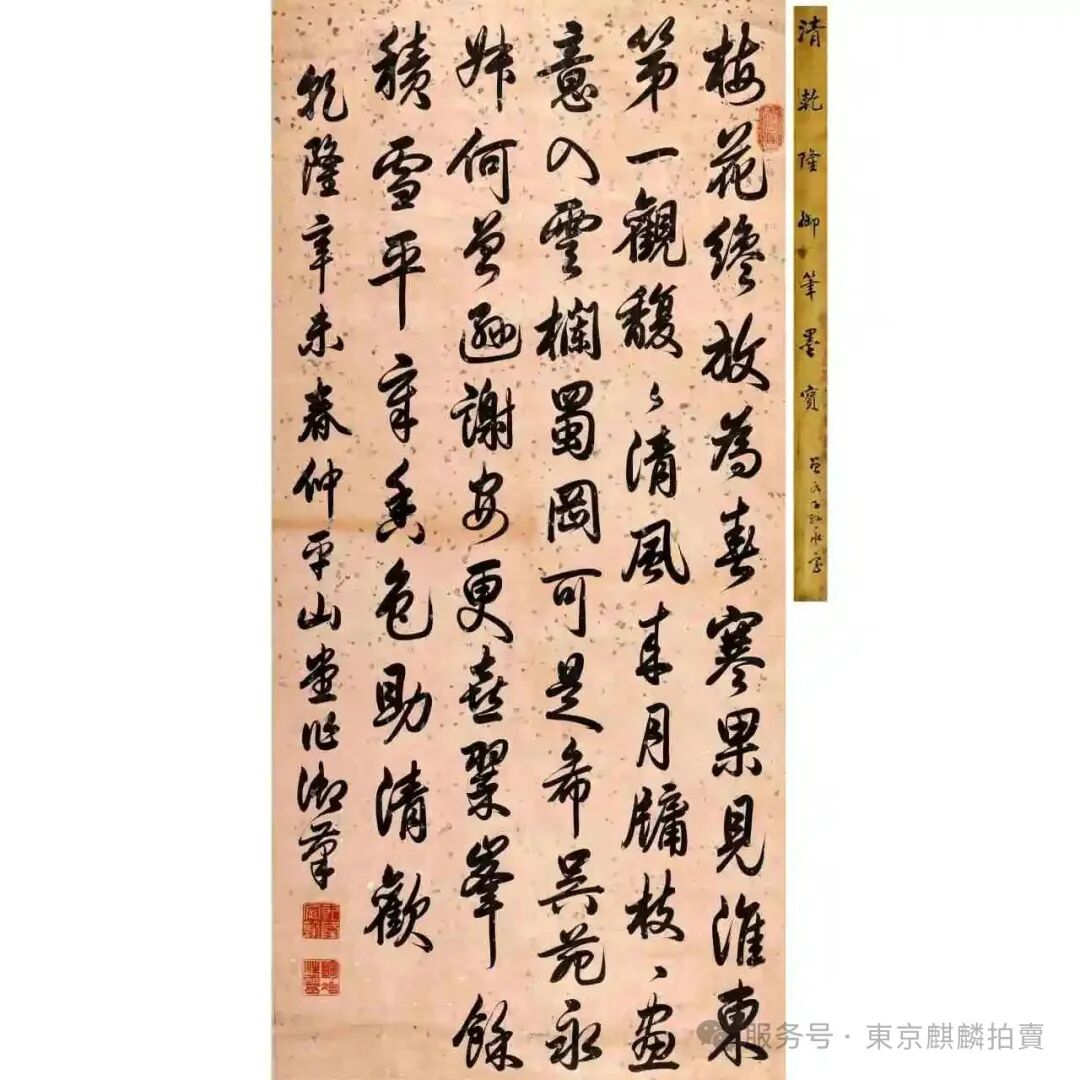 清乾隆御筆墨寶
梅花纔放為春寒果見淮東
第一觀馥〻清風来月牖枝〻畫
意入雲欄蜀岡可是希吳苑永
叔何曾遜謝安更喜翠峯餘
積雪平章香色助清歡
乾隆辛未春仲平山堂作御筆
服务号·東京麒麟拍賣